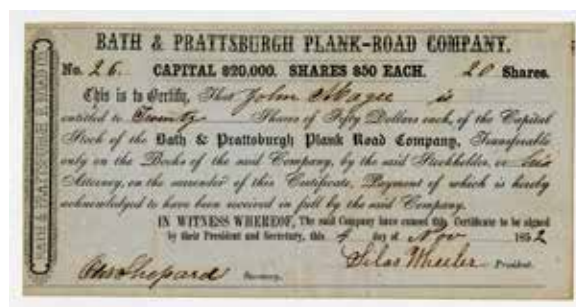 BATH & PRATTSBURGH PLANK-ROAD COMPANY.
No. 26. CAPITAL $20,000. SHARES $50 EACH. 20 Shares.
This is to Certify, That John Magee is
entitled to Twenty Shares of Fifty Dollars each, of the Capital
Stock of the Bath & Prattsburgh Plank Road Company, Transferable
only on the Books of the said Company, by the said Stockholder, or his
Attorney, on the surrender of this Certificate, Payment of which is hereby
acknowledged to have been received in full by the said Company.
IN WITNESS WHEREOF, The said Company have caused this Certificate to be signed
by their President and Secretary, this 4 day of Nov 1852
Silas Wheeler President.
Shepard Secretary.
BATH & PRATTSBURGH P. ROAD CO.